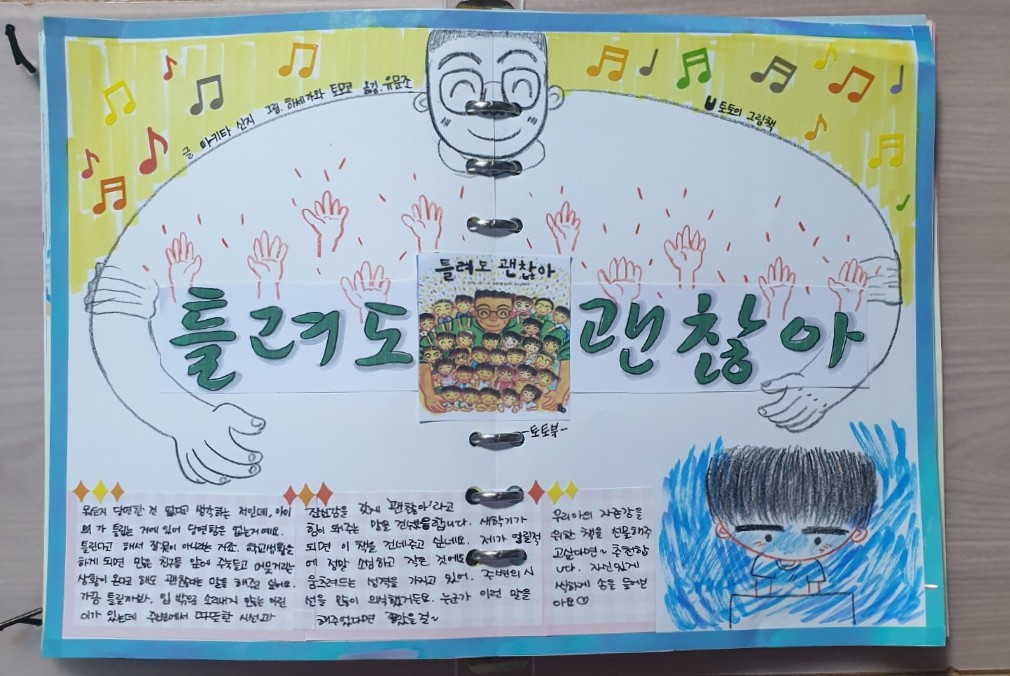 글 마키타 신지 그림. 하세가와 토모코 옮김. 유문조
토토의 그림책
틀려도 괜찮아
틀려도 괜찮아
-토토북-
뭐든지 당연한 것 없다고 생각하는 저인데, 아이
들 가 틀리는 거에 있어 당연함은 없는거예요.
틀린다고 해서 잘못이 아니라는 거죠. 학교생활을
하게 되면 많은 친구들 앞에 주눅들고 머뭇거리는
상황이 온다고 해도 괜찮다는 말을 해주고 싶어요.
가끔 틀릴까봐. 입 밖으로 소리내기 안하는 어린
이가 있는데 주변에서 따뜻한 시선과
자신감을 갖게 '괜찮아'라고
힘이 되주는 말을 건넸으면 합니다. 새학기가
되면 이 책을 건네주고 싶네요. 제가 어릴적
에 정말 소심하고 작은 것에도
움츠려드는 성격을 가지고 있어. 주변의 시
선을 많이 의식했거든요. 누군가 이런 말을
해주었다면 좋았을 걸~
우리아이 자존감을
위한 책을 선물해주
고싶다면~ 추천합
니다. 자신있게
씩씩하게 손을 들어보
아요♡